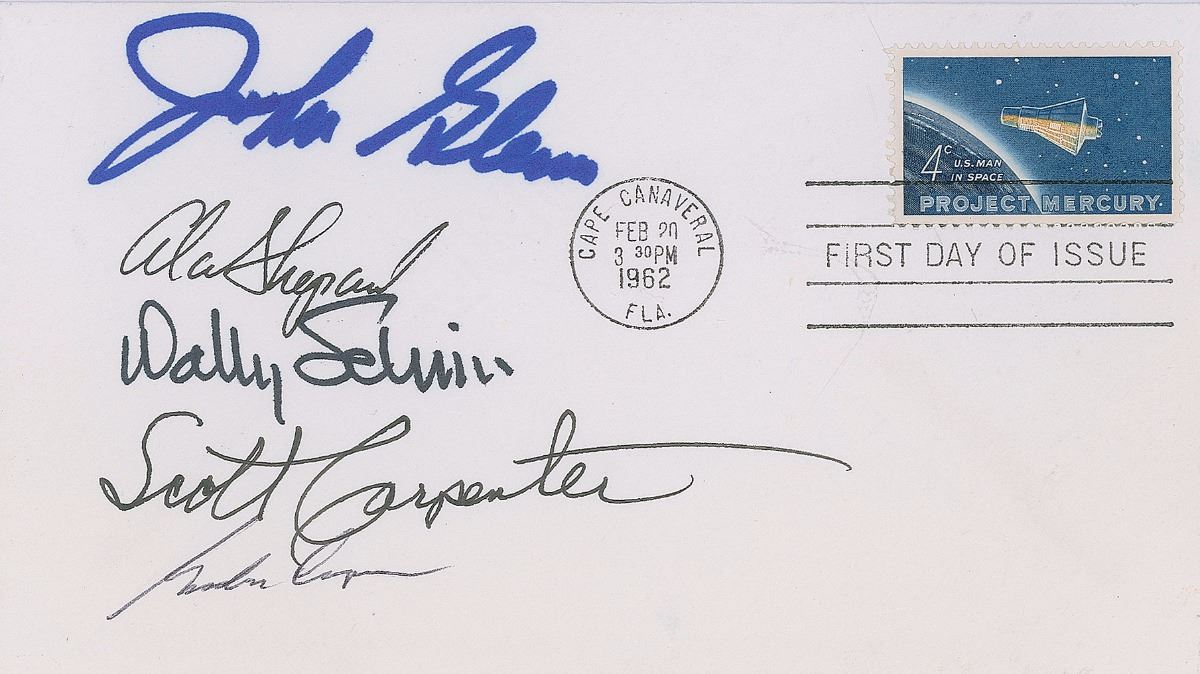 John Glenn
4c U.S. MAN
IN SPACE
PROJECT MERCURY
CAPE CANAVERAL
FEB 20
3 30 PM
1962
FLA.
FIRST DAY OF ISSUE
Alan Shepard
Wally Schirra
Scott Carpenter
Gordon Cooper